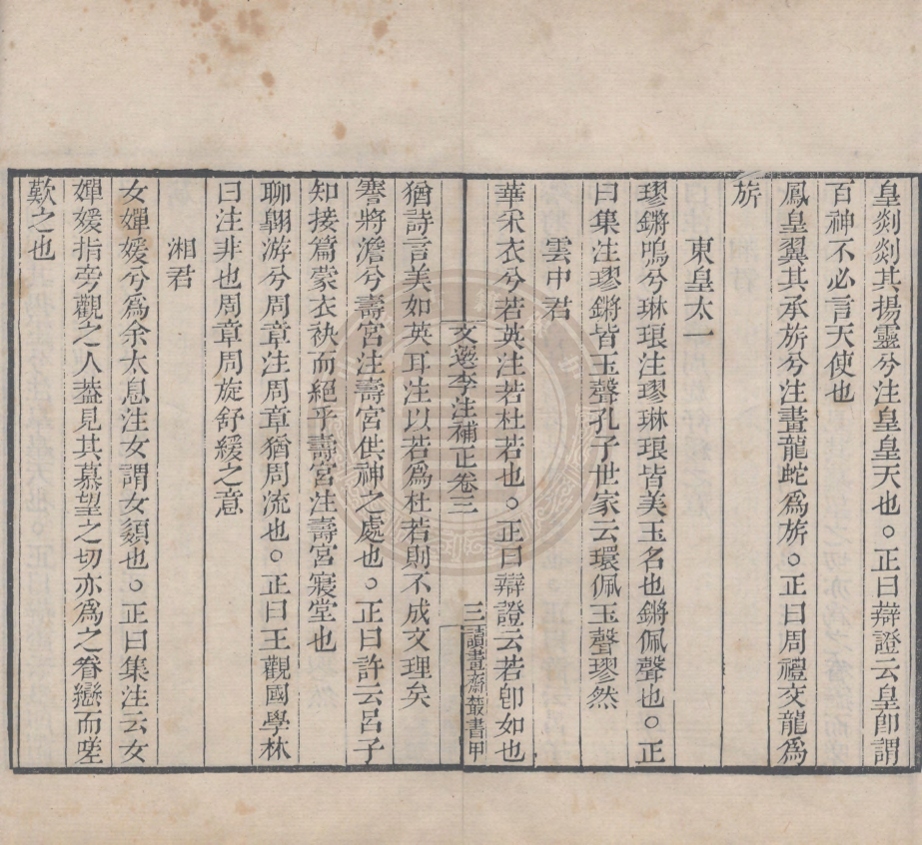 皇剡剡其揚靈兮注皇皇天也○正曰辯證云皇卽謂
百神不必言天使也
鳳皇翼其承旂兮注畫龍蛇爲旂○正曰周禮交龍爲
旂
東皇太一
璆鏘鳴兮琳琅注璆琳琅皆美玉名也鏘佩聲也○正
曰集注璆鏘皆玉聲孔子世家云環佩玉聲璆然
雲中君
華采衣兮若英注若杜若也○正曰辯證云若卽如也
文選李注補正卷三
三
讀畫齋叢書甲
猶詩言美如英耳注以若爲杜若則不成文理矣
謇將澹兮壽宮注壽宮供神之處也○正曰許云呂子
知接篇蒙衣袂而絕乎壽宮注壽宮寢堂也
聊翱游兮周章注周章猶周流也○正曰王觀國學林
曰注非也周章周旋舒緩之意
湘君
女嬋媛兮爲余太息注女謂女嬃也○正曰集注云女
嬋媛指旁觀之人蓋見其慕望之切亦爲之眷戀而嗟
歎之也